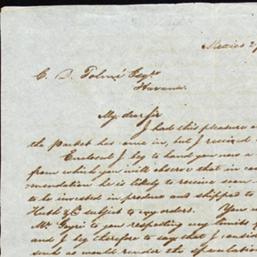 Mexico 29
C. D. Tolmé Esqre
Havana.
My dear Sir
I had this pleasure
the Packet has come in, but I received
Enclosed I beg to hand you now a
from which you will observe that in
mendation he is likely to receive soon
to be invested in produce and shipped to
Huth & Co subject to my orders. You
Mr. to you respecting my limits
and I beg therefore to say that I
such as would render the speculation